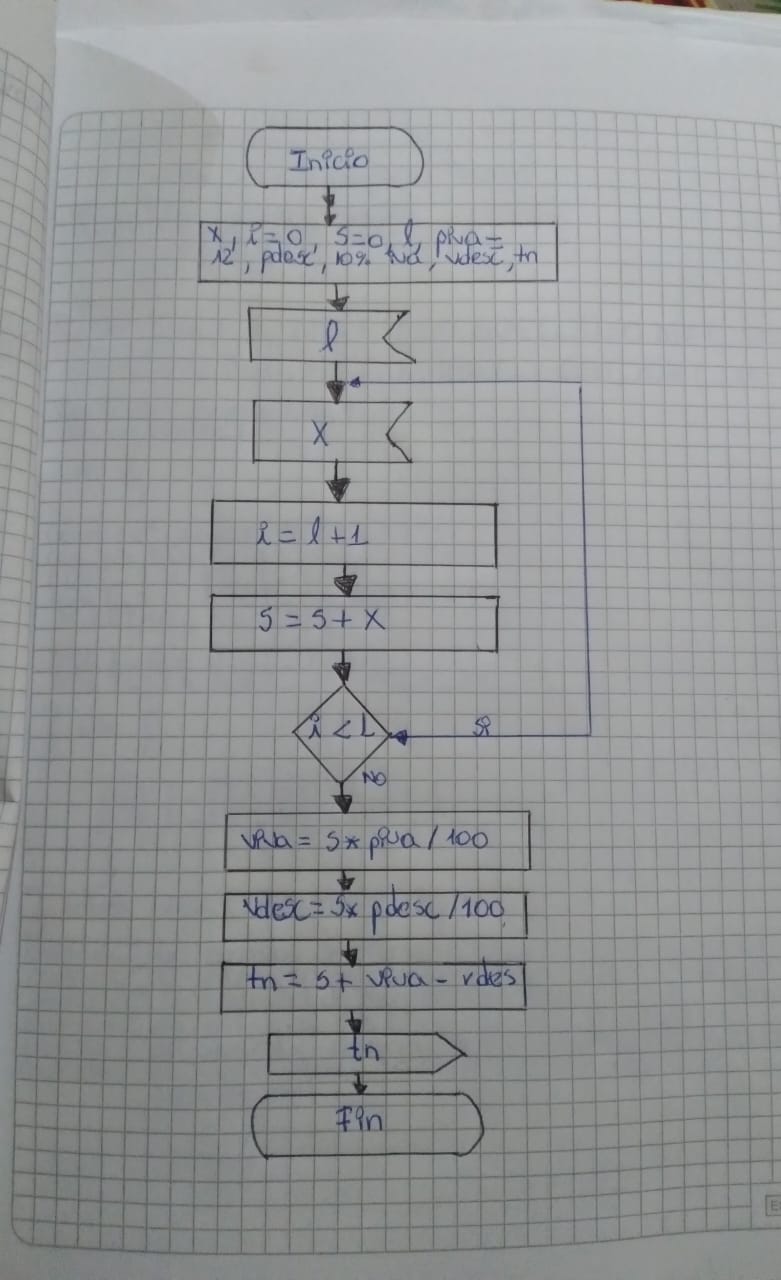 Inicio
x, i=0, s=0, l, piva=
12, pdesc, 10% iva, vdesc, tn
l
x
i = l + 1
s = s + x
i < L
si
NO
viva = s* piva / 100
vdesc = s* pdesc / 100
tn = s + viva - vdes
tn
Fin